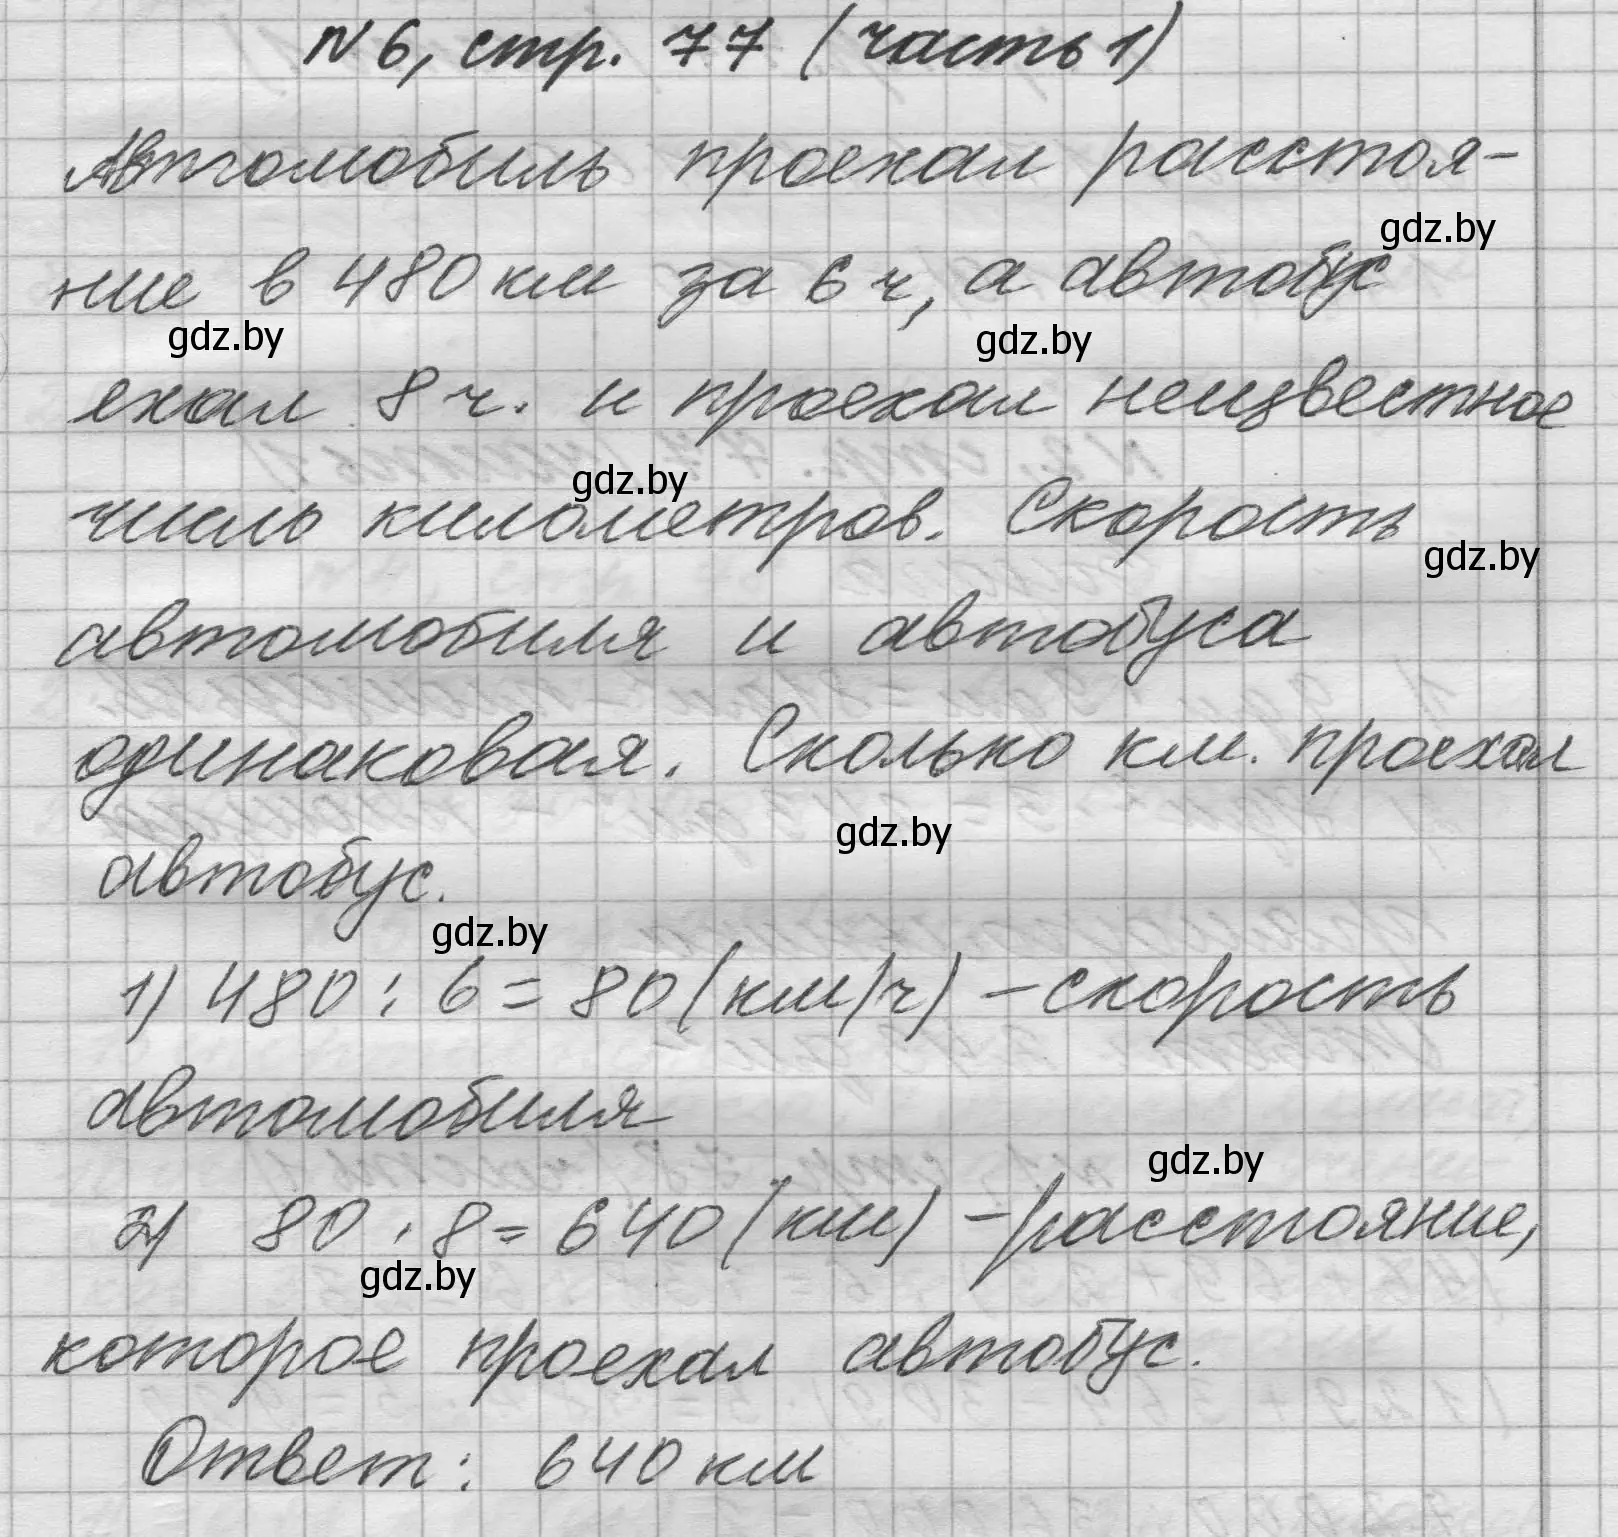 №6, стр. 77 (часть 1)
Автомобиль проехал расстоя-
gdz.by
ние в 480 км за 6 ч, а автобус
gdz.by gdz.by
ехал 8 ч. и проехал неизвестное
gdz.by
число километров. Скорость
gdz.by
автомобиля и автобуса
одинаковая. Сколько км. проехал
gdz.by
автобус.
gdz.by
1) 480 : 6 = 80 (км/ч) – скорость
автомобиля
gdz.by
2) 80 · 8 = 640 (км) – расстояние,
gdz.by
которое проехал автобус.
Ответ: 640 км